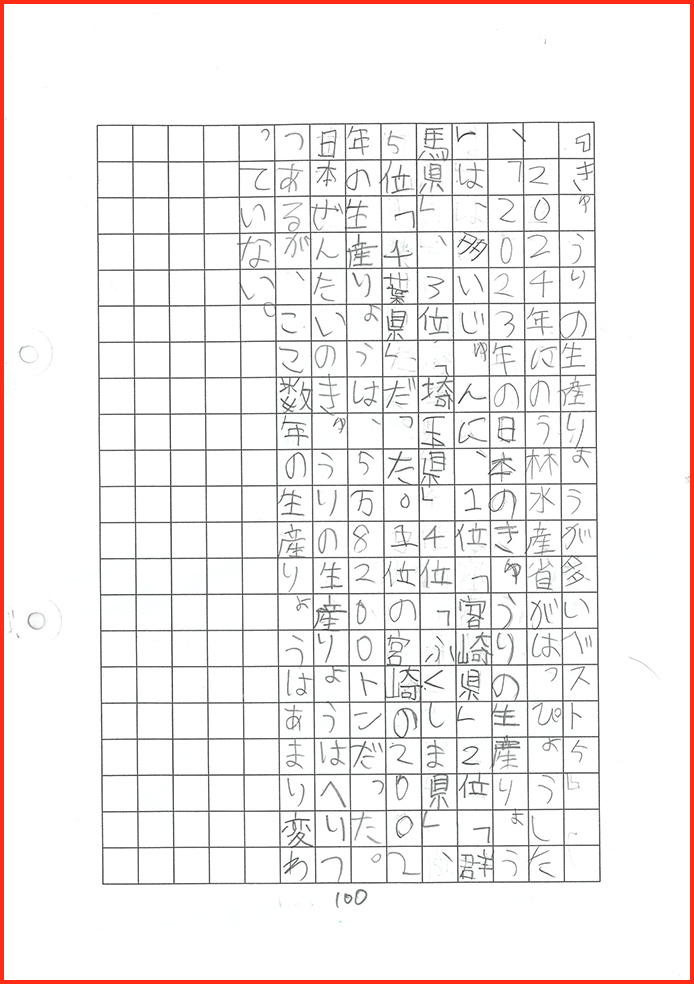 「きゅうりの生産りょうが多いベスト5」
2024年にのう林水産省がはっぴょうした
、「2023年の日本のきゅうりの生産りょう
」は、多いじゅんに、1位「宮崎県」2位「群
馬県」、3位「埼玉県」4位「ふくしま県」、
5位「千葉県」だった。1位の宮崎の2002
年の生産りょうは、5万8200トンだった。
日本ぜんたいのきゅうりの生産りょうはへりつ
つあるが、ここ数年の生産りょうはあまり変わ
っていない。
100